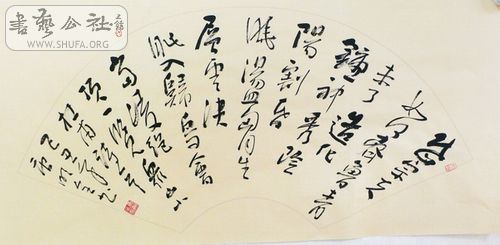 書藝公社
WWW.SHUFA.ORG
岱宗夫
如何齊魯青
未了造化
鍾神秀陰
陽割昏
曉盪胸生
層雲決
眦入歸鳥會
當凌絕
頂一覽眾山小
杜甫
己丑